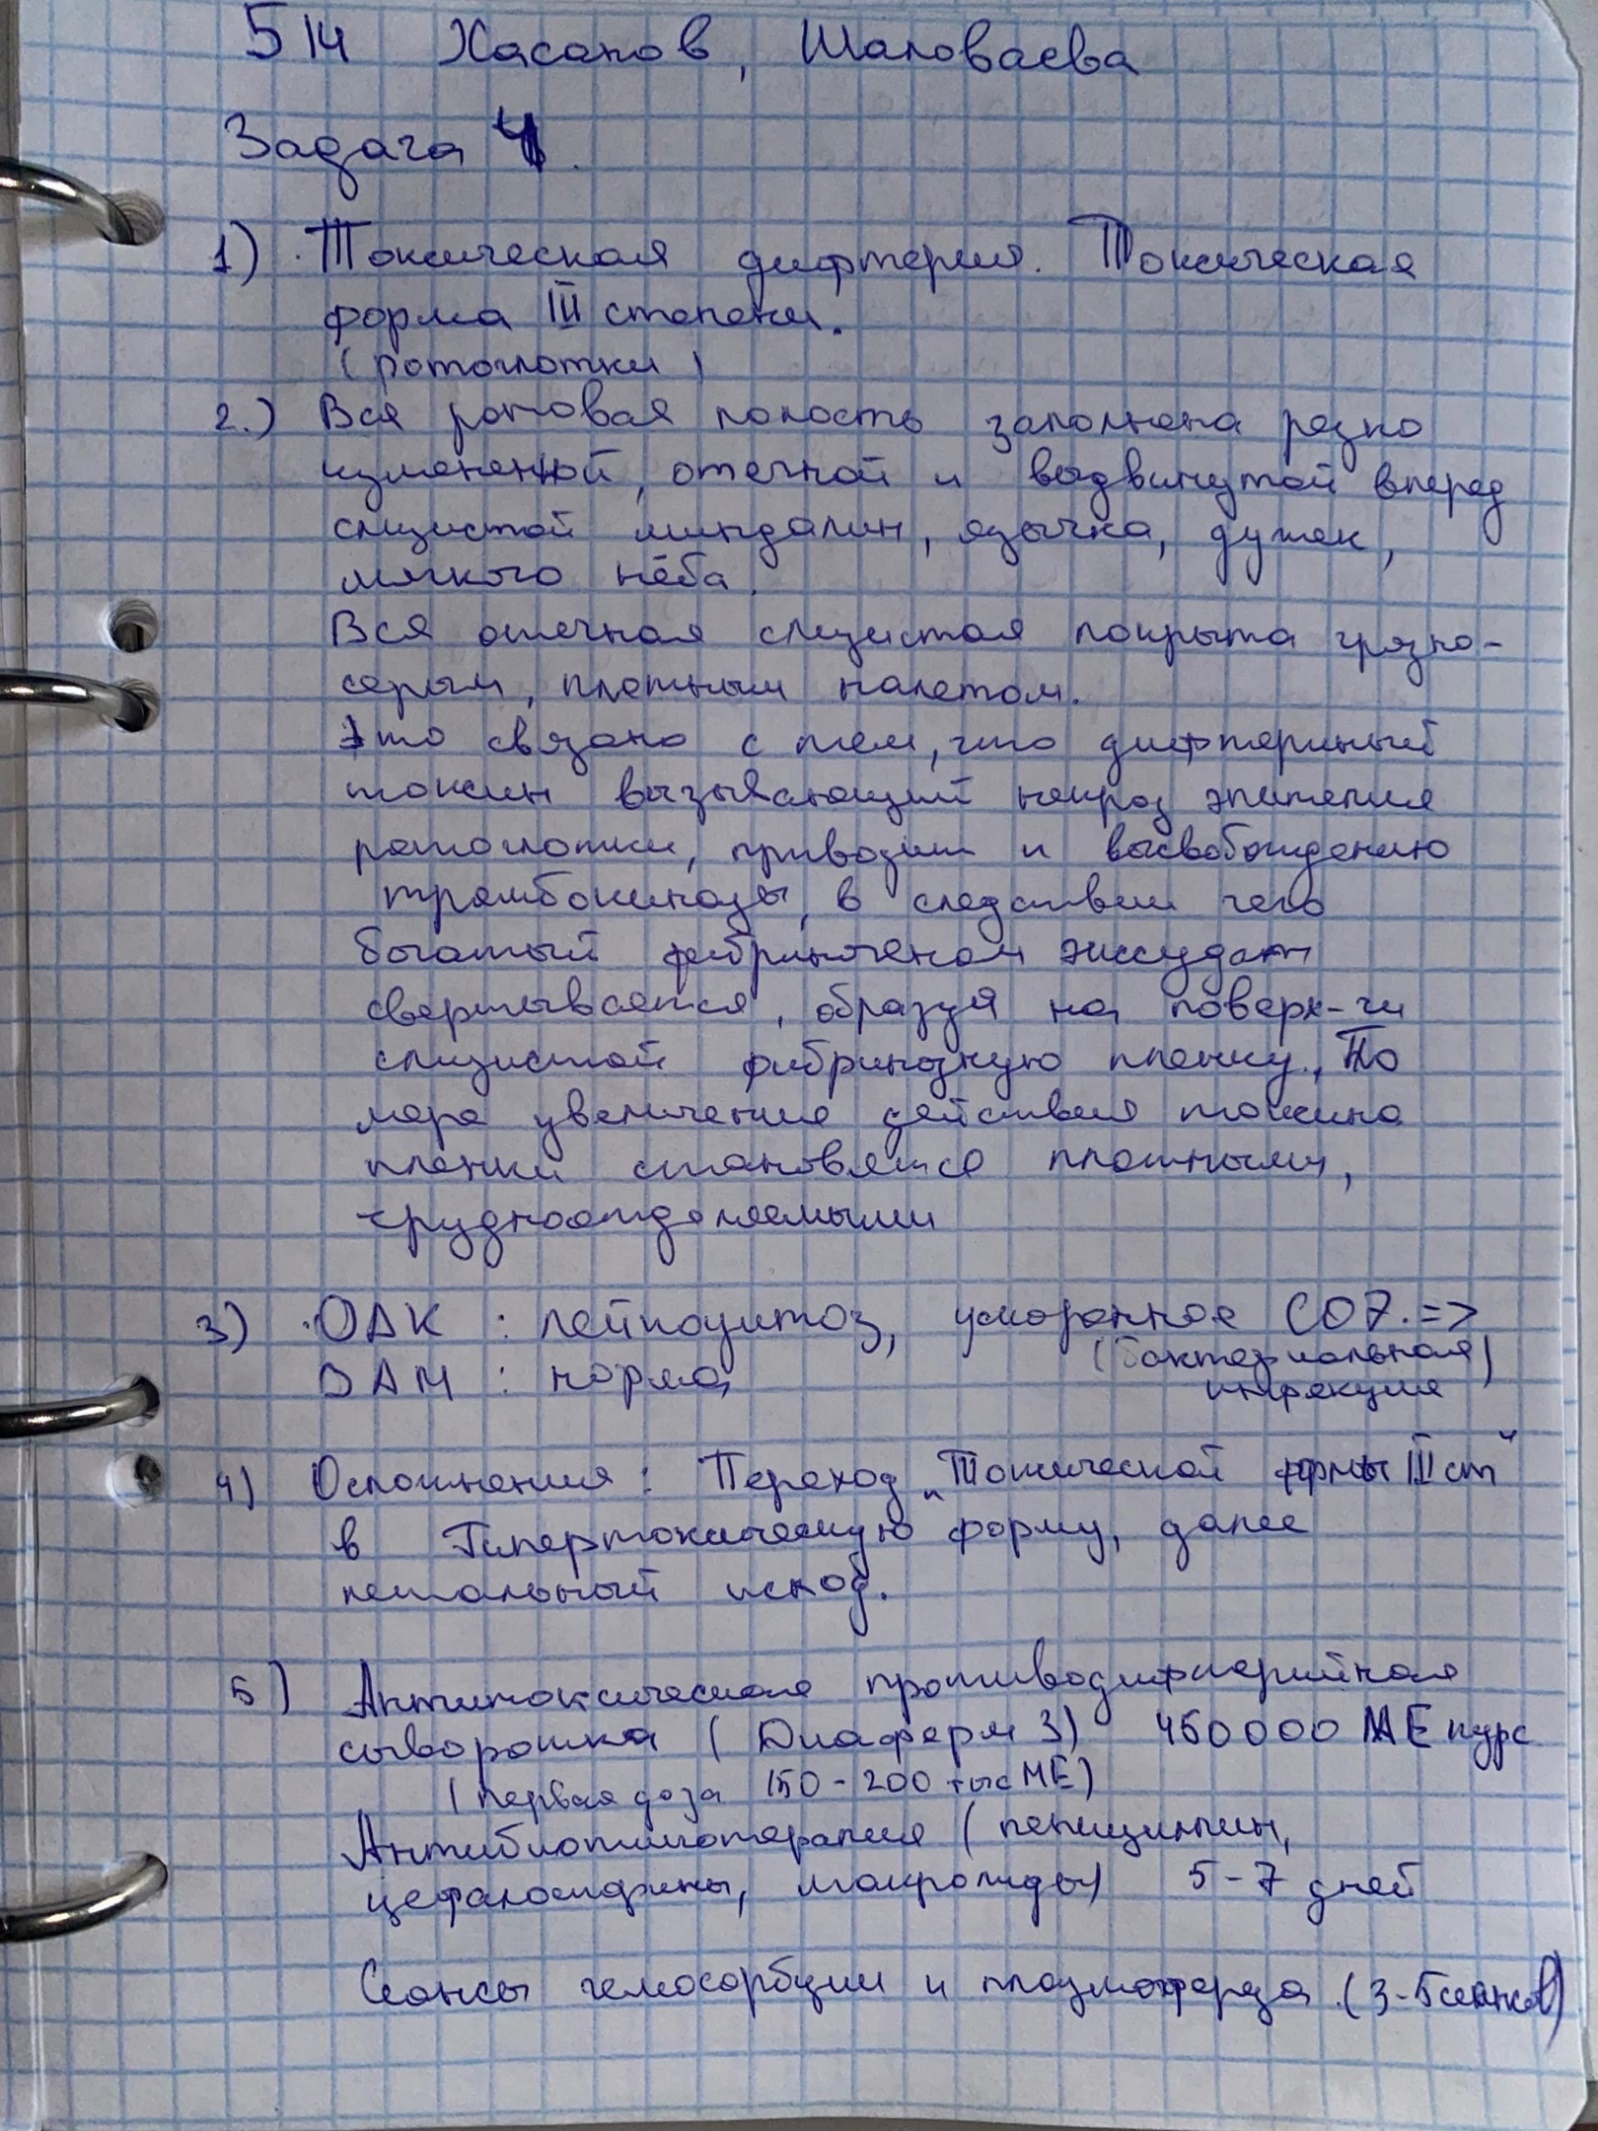 514 Хасанов, Шаповаева
Задача 4.
1) Токсическая дифтерия. Токсическая
форма III степени.
(ротоглотки)
2.) Вся ротовая полость заполнена резко
измененной, отечной и выдвинутой вперед
слизистой миндалин, язычка, дужек,
мягкого нёба.
Вся отечная слизистая покрыта грязно-
серым, плотным налетом.
Это связано с тем, что дифтерийный
токсин вызывающий некроз эпителия
ротоглотки, приводит к высвобождению
тромбокиназы, в следствии чего
богатый фибриногеном экссудат
свертывается, образуя на поверх-ти
слизистой фибринозную пленку., По
мере увеличения действия токсина
пленки становятся плотными,
трудноотделяемыми
3) ОАК : лейкоцитоз, ускоренное СОЭ. =>
(бактериальная)
ОАМ : норма
инфекция
4) Осложнения : Переход "Токсической формы III ст"
в Гипертоксическую форму, далее
летальный исход.
5) Антитоксическая противодифтерийная
сыворотка ( Диаферм 3) 450000 МЕ курс
(первая доза 150-200 тыс МЕ)
Антибиотикотерапия ( пенициллин,
цефалоспорины, макролиды) 5-7 дней
Сеансы гемосорбции и плазмофереза (3-5 сеансов)